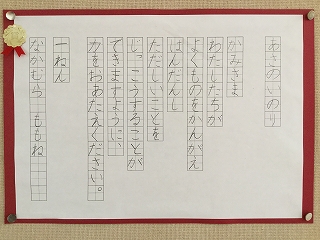 あきのいのり
かみさま
わたしたちが
よくものをかんがえ
はんだんし
ただしいことを
じっこうすることが
できますように、
力をおあたえください。
一ねん
なかむら ももね